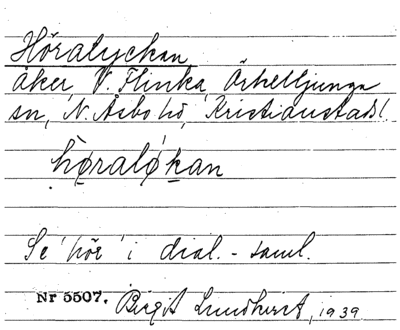 Höralyckan
åker, V. Flinka, Örkelljunga
sn, N. Åsbo hd, Kristianstads l.
hø̀raló̷kan
Se 'hör' i dial.-saml.
Nr 5507. Birgit Lundkvist, 1939